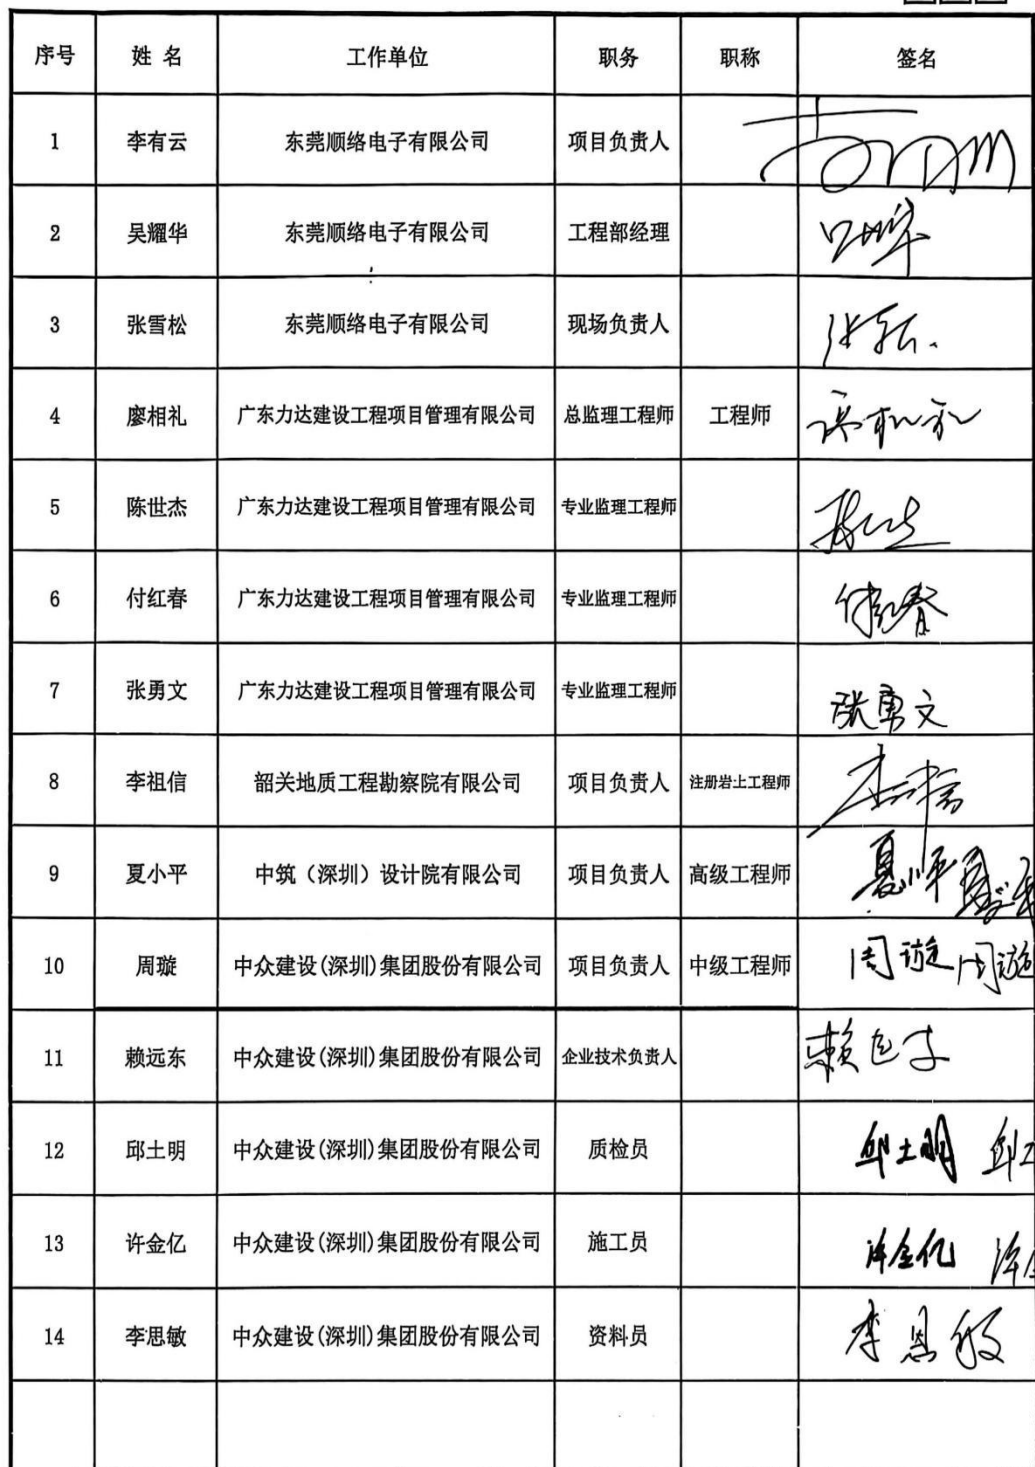 序号 姓 名 工作单位 职务 职称 签名
1 李有云 东莞顺络电子有限公司 项目负责人
2 吴耀华 东莞顺络电子有限公司 工程部经理
3 张雪松 东莞顺络电子有限公司 现场负责人
4 廖相礼 广东力达建设工程项目管理有限公司 总监理工程师 工程师
5 陈世杰 广东力达建设工程项目管理有限公司 专业监理工程师
6 付红春 广东力达建设工程项目管理有限公司 专业监理工程师 付红春
7 张勇文 广东力达建设工程项目管理有限公司 专业监理工程师 张勇文
8 李祖信 韶关地质工程勘察院有限公司 项目负责人 注册岩土工程师
9 夏小平 中筑（深圳）设计院有限公司 项目负责人 高级工程师 夏小平
10 周璇 中众建设(深圳)集团股份有限公司 项目负责人 中级工程师 周璇 周璇
11 赖远东 中众建设(深圳)集团股份有限公司 企业技术负责人 赖远东
12 邱土明 中众建设(深圳)集团股份有限公司 质检员 邱土明
13 许金亿 中众建设(深圳)集团股份有限公司 施工员 许金亿
14 李思敏 中众建设(深圳)集团股份有限公司 资料员 李思敏